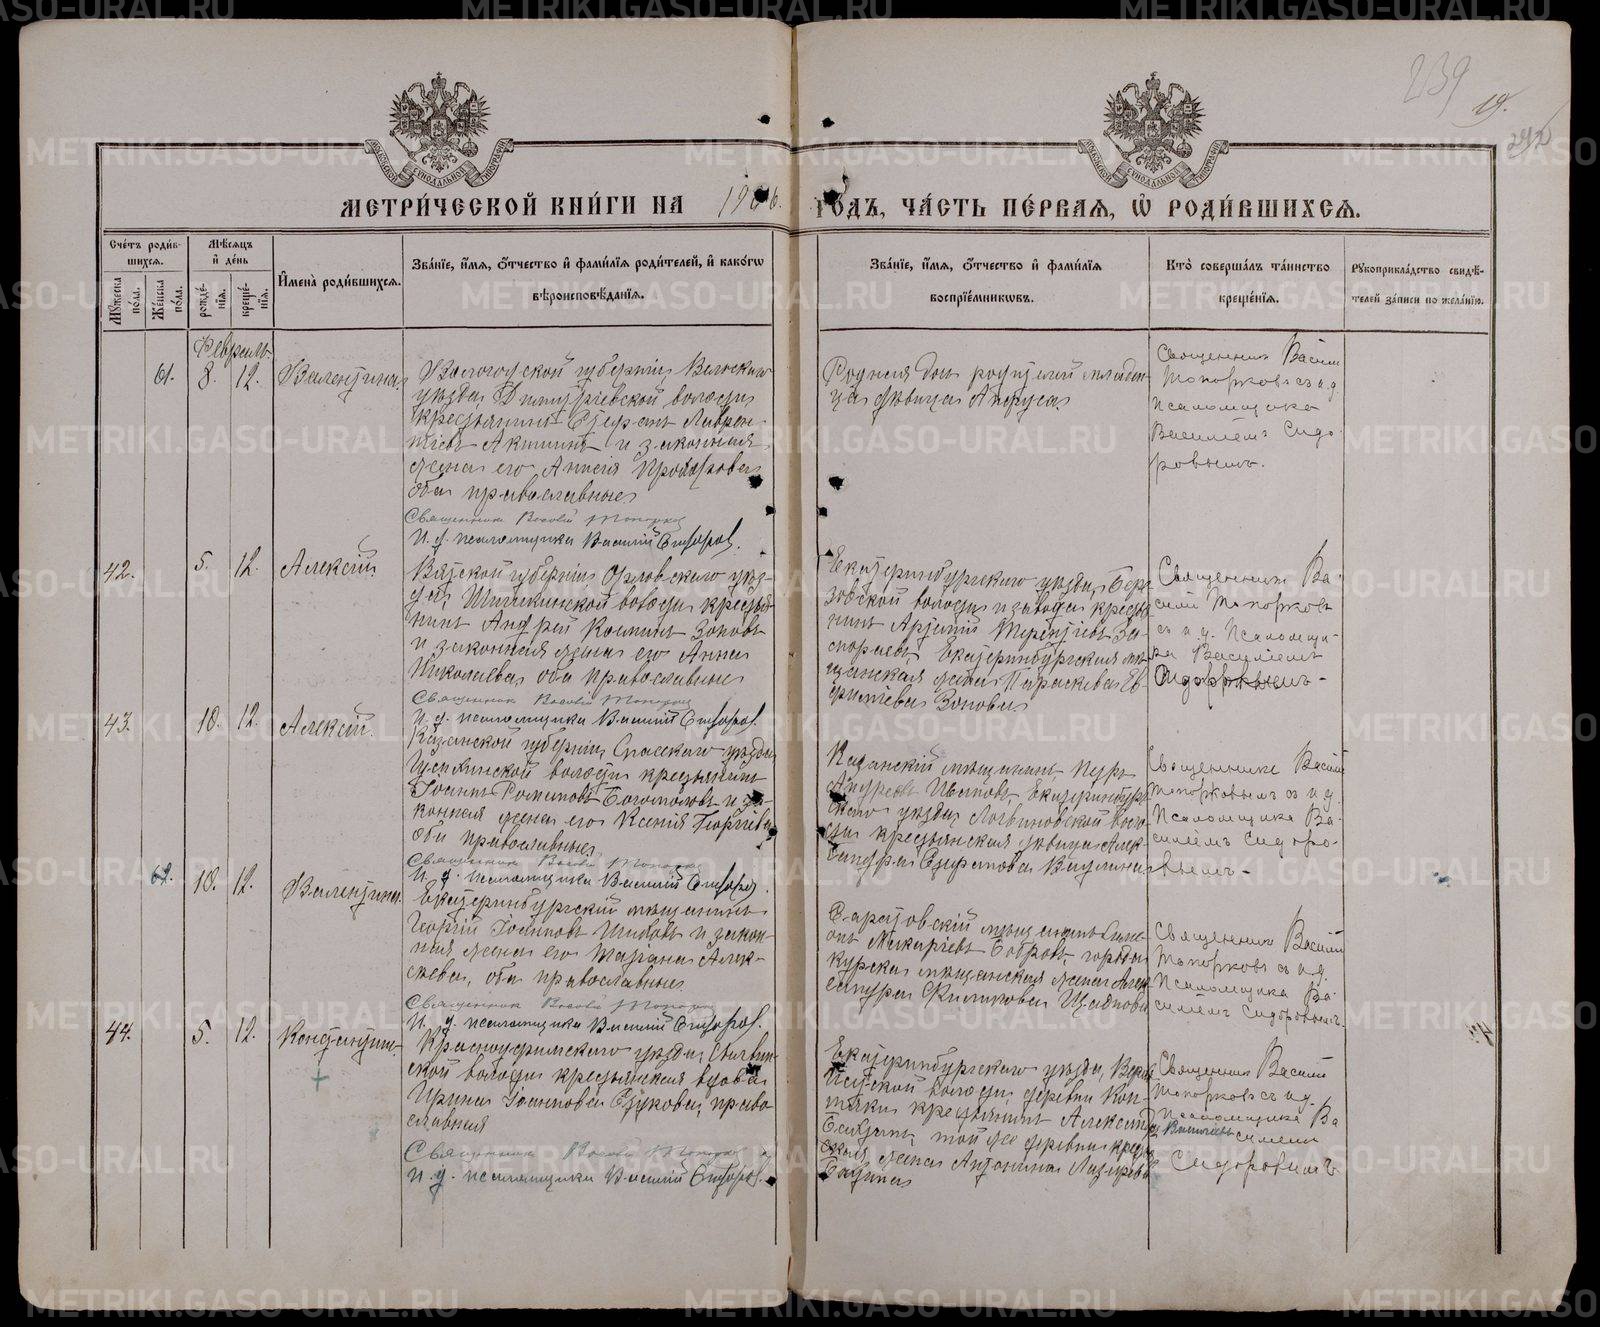 239
19.
242
МЕТРИ́ЧЕСКОЙ КНИ́ГИ НА 1906. ГО́ДЪ, ЧА́СТЬ ПЕ́РВАЯ, Ѡ҆ РОДИ́ВШИХСЯ.
Сче́тъ роди́в-
шихся.
Мꙋ́жеска по́ла.
Же́нска по́ла.
Мѣ́сяцъ
и҆ де́нь
рожде́-
нїя.
креще́-
нїя.
И҆мена̀ роди́вшихся.
Зва́нїе, и҆́мя, ѻ҆́тчество и҆ фами́лїя роди́телей, и҆ како́гѡ
вѣроисповѣ́данїя.
Зва́нїе, и҆́мя, ѻ҆́тчество и҆ фами́лїя
воспрїе́мникѡвъ.
Кто̀ соверша́лъ та́инство
креще́нїя.
Рꙋкоприкла́дство свидѣ́-
телей за́писи по жела́нїю.
Февраль.
61. 8. 12. Валентина
Вологодской губернiи, Вельскаго
уѣзда Димитрiевской волости
крестьянинъ Стефанъ Лаврен-
тiевъ Акишинъ и законная
жена его Анисiя
оба православные
Священник Васiлiй Топорков
И. д. псаломщика Василiй Сидоров.
Родная дочь родителей младен-
ца дѣвица Анфуса.
Священник Василiй
Топорковъ съ и.д.
Псаломщика
Василiемъ Сидо-
ровымъ.
42. 5. 12. Алексiй
Вятской губернiи Орловскаго уѣз-
да, волости крестья-
нинъ Андрей Косминъ Зоновъ
и законная жена его Анна
Николаева, оба православные
Священник Васiлiй Топорков
И. д. псаломщика Василiй Сидоров.
Екатеринбургскаго уѣзда, Бере-
зовской волости и завода крестья-
нинъ Артемiй Терентiевъ За-
Екатеринбургская мѣ-
щанская жена Параскева Ев-
Зонова
Священникъ Ва-
силiй Топорковъ
съ и.д. Псаломщи-
ка Василiемъ
Сидоровымъ-
43. 10. 12. Алексiй
Казанской губернiи, Спасскаго уѣзда
волости крестьянинъ
Iоаннъ Романовъ Богомоловъ и за-
конная жена его Ксенiя Георгiева
оба православные
Священник Васiлiй Топорков
И. д. псаломщика Василiй Сидоров.
Казанскiй мѣщанинъ Петръ
Андреевъ Ивановъ, Екатеринбург-
скаго уѣзда Логиновской воло-
сти крестьянская дѣвица Алек-
сандра Стефанова
Священникъ Василiй
Топорковымъ съ и.д.
Псаломщика Ва-
силiемъ Сидоро-
вымъ-
62. 10. 12. Валентина.
Екатеринбургскiй мѣщанинъ
Георгiй Iоанновъ Шибовъ и закон-
ная жена его Татiана Алек-
сѣева, оба православные.
Священник Васiлiй Топорков
И. д. псаломщика Василiй Сидоров.
Саратовскiй мѣщанинъ Симе-
онъ Макарiевъ Бобровъ, города
Курска мѣщанская жена Алек-
сандра Филипова
Священник Василiй
Топорковъ съ и.д.
Псаломщика Ва-
силiемъ Сидоровымъ.
44. 5. 12. Константинъ.
Красноуфимскаго уѣзда,
ской волости крестьянская вдова
Ирина Iоаннова право-
славная
Священник Васiлiй Топорков
И. д. псаломщика Василiй Сидоров.
Екатеринбургскаго уѣзда, Верх-
Исетской волости, деревни Кон-
крестьянинъ Александръ
той же деревни кресть-
ская жена Антонина Лазарева
Священник Василiй
Топорковъ съ и.д.
Псаломщика Ва
силiемъ
Сидоровымъ